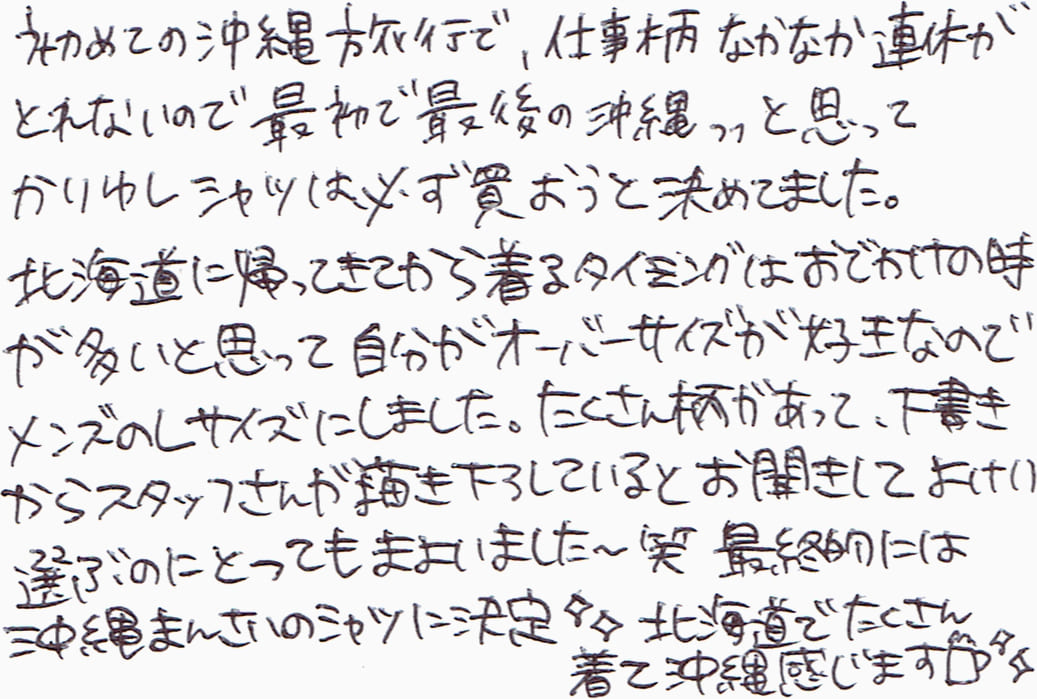 初めての沖縄旅行で、仕事柄なかなか連休が
とれないので最初で最後の沖縄っっと思って
かりゆしシャツは必ず買おうと決めてました。
北海道に帰ってきてから着るタイミングはおでかけの時
が多いと思って自分がオーバーサイズが好きなので
メンズのLサイズにしました。たくさん柄があって、下書き
からスタッフさんが描き下ろしているとお聞きしてよけい
選ぶのにとってもまよいました〜笑 最終的には
沖縄まんさいのシャツに決定✧✧ 北海道でたくさん
着て沖縄感じます🍺✧✧